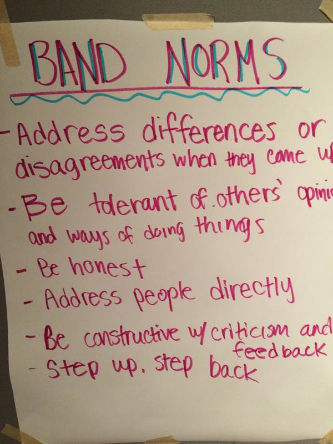 BAND NORMS
- Address differences or
disagreements when they come u
- Be tolerant of others' opini
and ways of doing things
- Be honest
- Address people directly
- Be constructive w/ criticism and
feedback
- Step up, step back